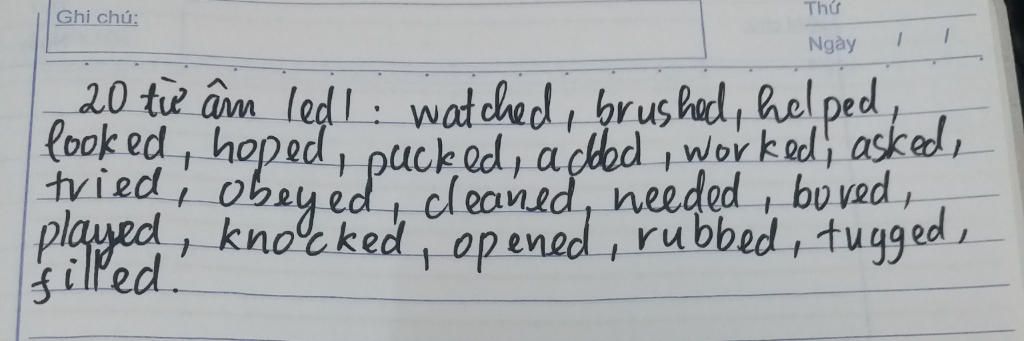 Ghi chú:
Thứ
Ngày / /
20 từ âm /ed/ : watched, brushed, helped,
looked, hoped, packed, added, worked, asked,
tried, obeyed, cleaned, needed, bored,
played, knocked, opened, rubbed, tugged,
filled.